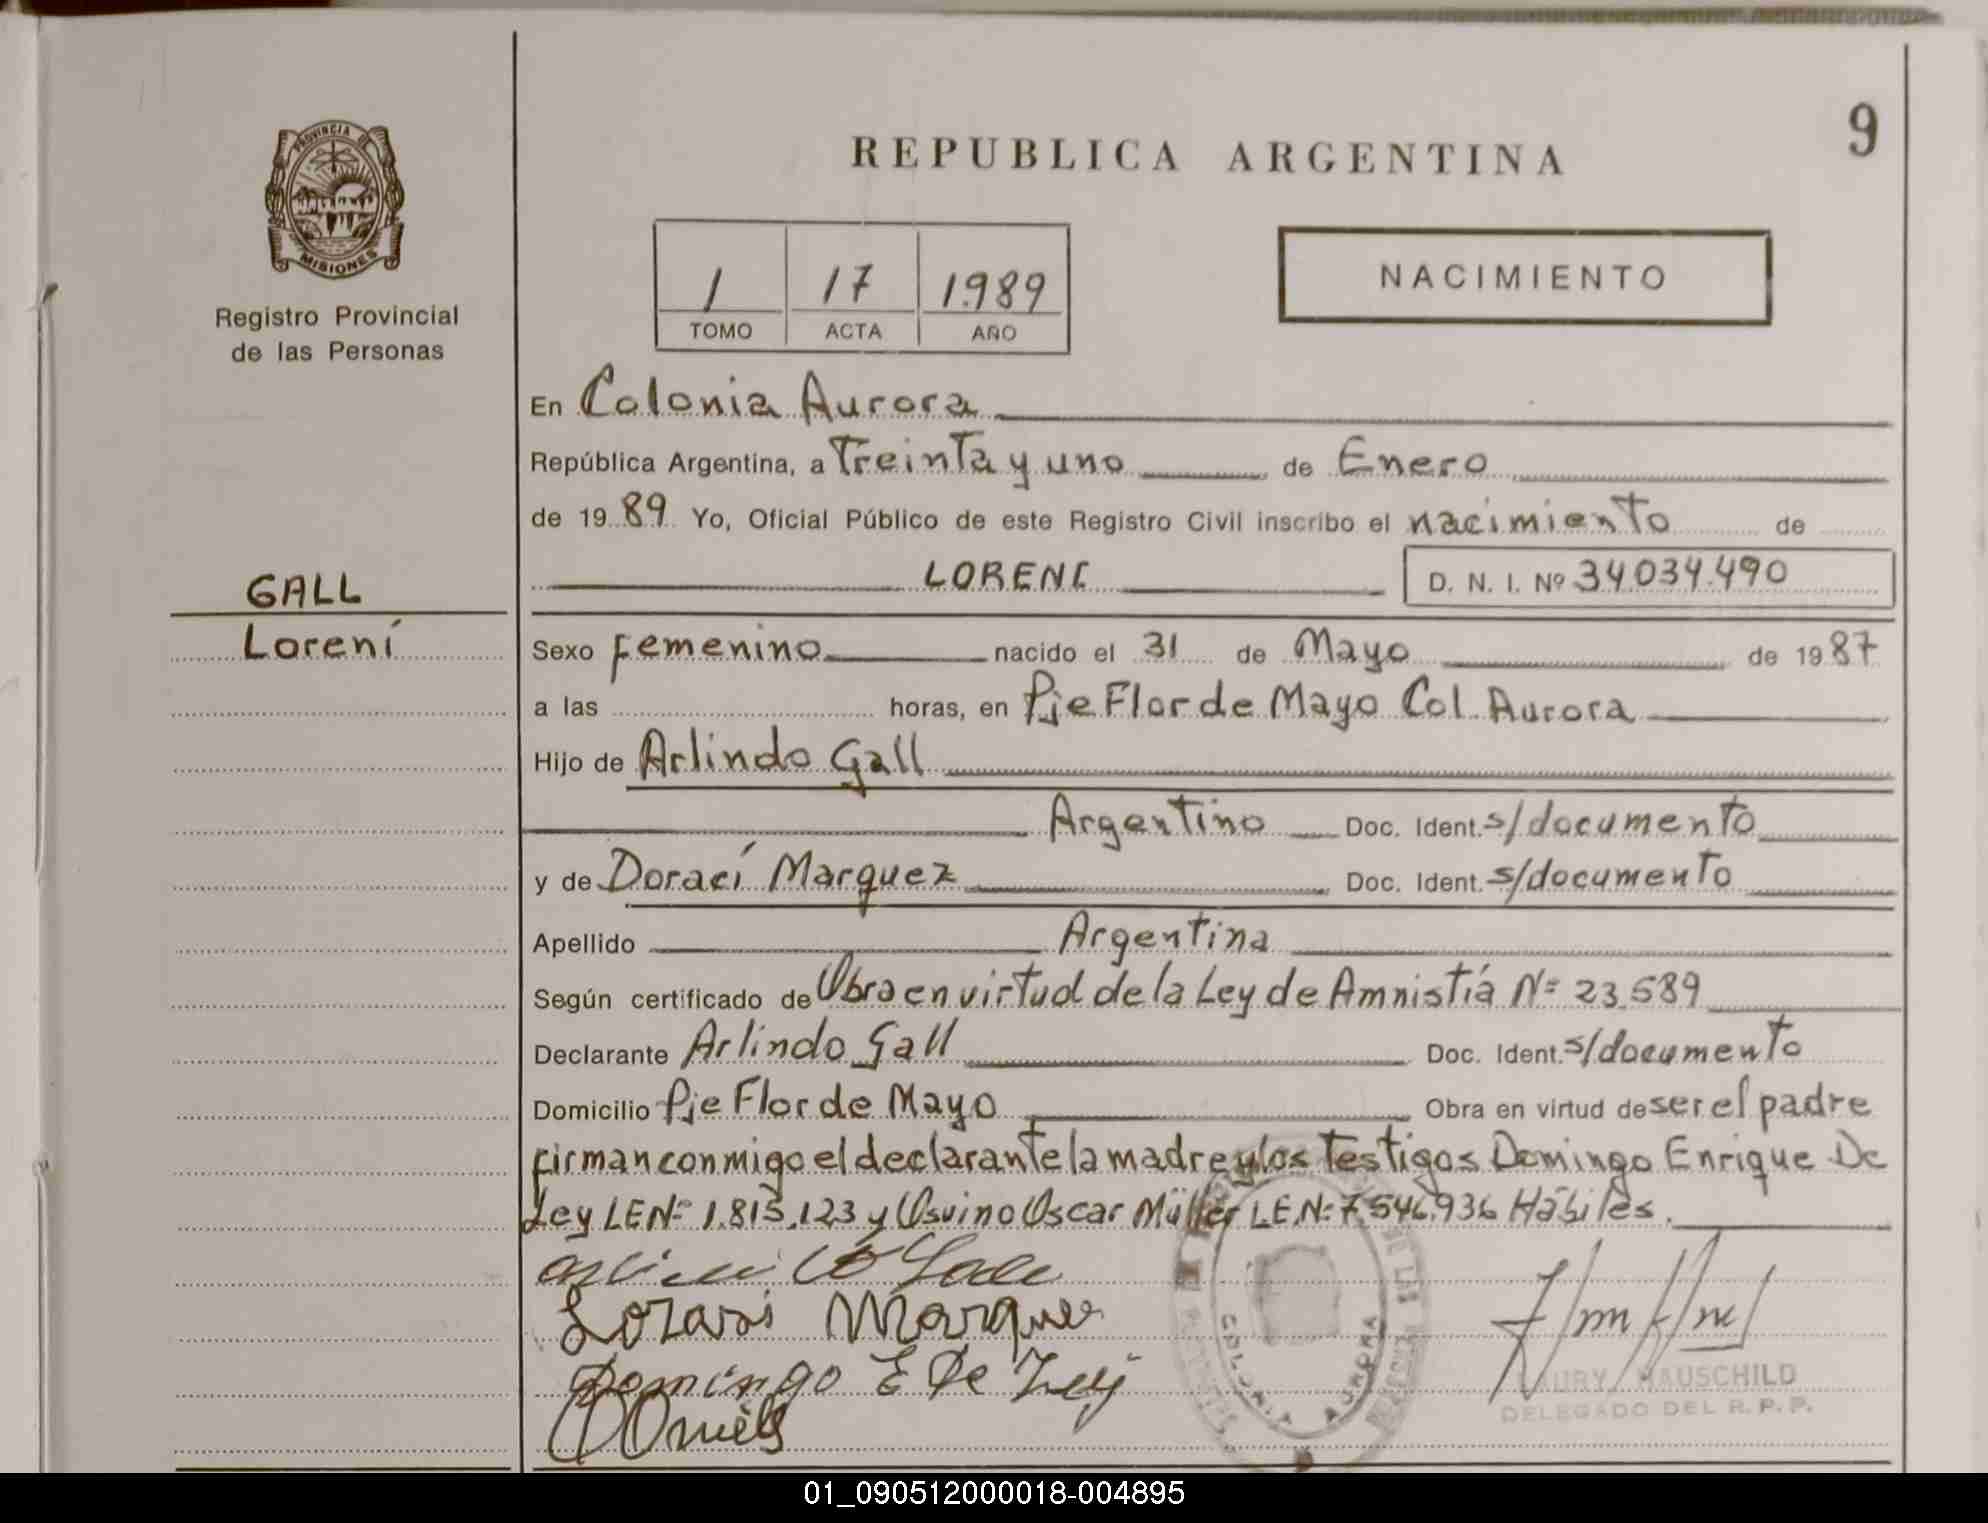 REPUBLICA ARGENTINA
9
PROVINCIA DE
MISIONES
Registro Provincial
de las Personas
1 17 1989
TOMO ACTA AÑO
NACIMIENTO
En Colonia Aurora
República Argentina, a Treinta y uno de Enero
de 19 89 Yo, Oficial Público de este Registro Civil inscribo el nacimiento de
LORENI D. N. I. Nº 34.034.490
GALL
Lorení
Sexo Femenino nacido el 31 de Mayo de 19 87
a las horas, en Pje Flor de Mayo Col. Aurora
Hijo de Arlindo Gall
Argentino Doc. Ident. s/documento
y de Dorací Marquez Doc. Ident. s/documento
Apellido Argentina
Según certificado de Obra en virtud de la Ley de Amnistía Nº 23.589
Declarante Arlindo Gall Doc. Ident. s/documento
Domicilio Pje Flor de Mayo Obra en virtud de ser el padre
firman conmigo el declarante la madre y los testigos Domingo Enrique De
Ley LE Nº 1.815.123 y Osvino Oscar Müller L.E.Nº 7.546.936 Hábiles.
Marques
Domingo E De Ley
COLONIA AURORA
HAUSCHILD
DELEGADO DEL R.P.P.
01_090512000018-004895